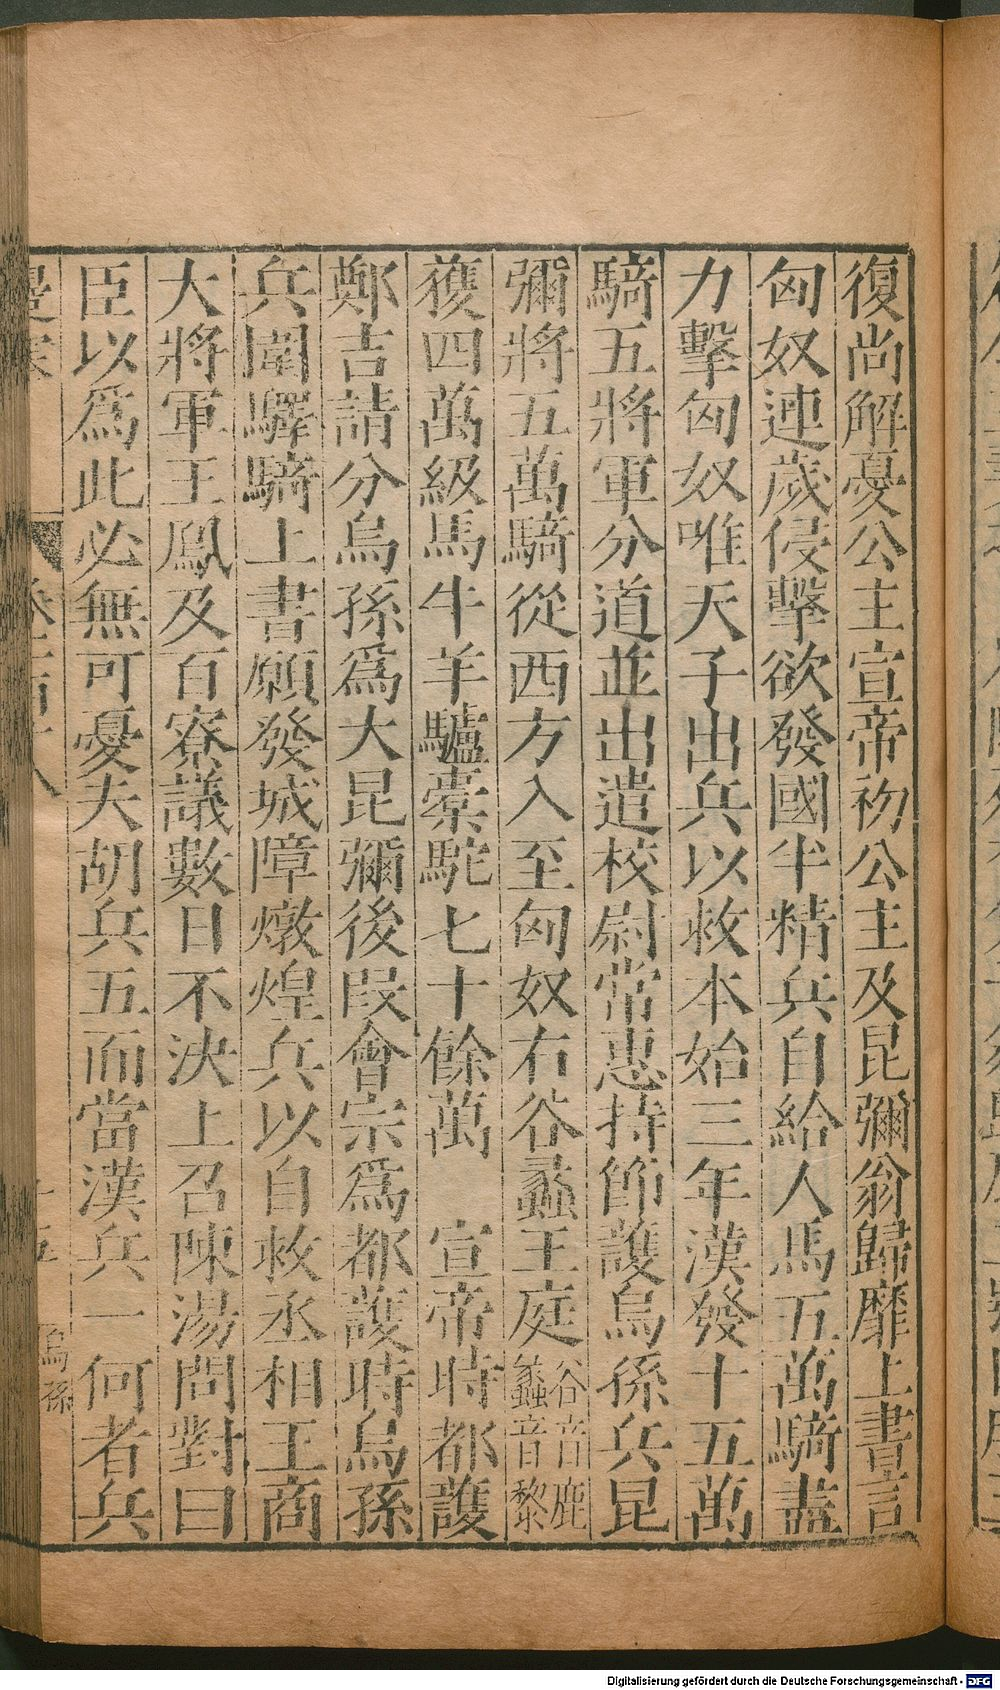 復尚解憂公主宣帝初公主及昆彌翁歸靡上書言
匈奴連歲侵擊欲發國半精兵自給人馬五萬騎盡
力擊匈奴唯天子出兵以救本始三年漢發十五萬
騎五將軍分道並出遣校尉常惠持節護烏孫兵昆
彌將五萬騎從西方入至匈奴右谷蠡王庭谷音鹿
蠡音黎
獲四萬級馬牛羊驢橐駝七十餘萬 宣帝時都護
鄭吉請分烏孫爲大昆彌後段會宗爲都護時烏孫
兵圍驛騎上書願發城障燉煌兵以自救丞相王商
大將軍王鳳及百寮議數日不決上召陳湯問對曰
臣以爲此必無可憂夫胡兵五而當漢兵一何者兵
烏孫
Digitalisierung gefördert durch die Deutsche Forschungsgemeinschaft - DFG